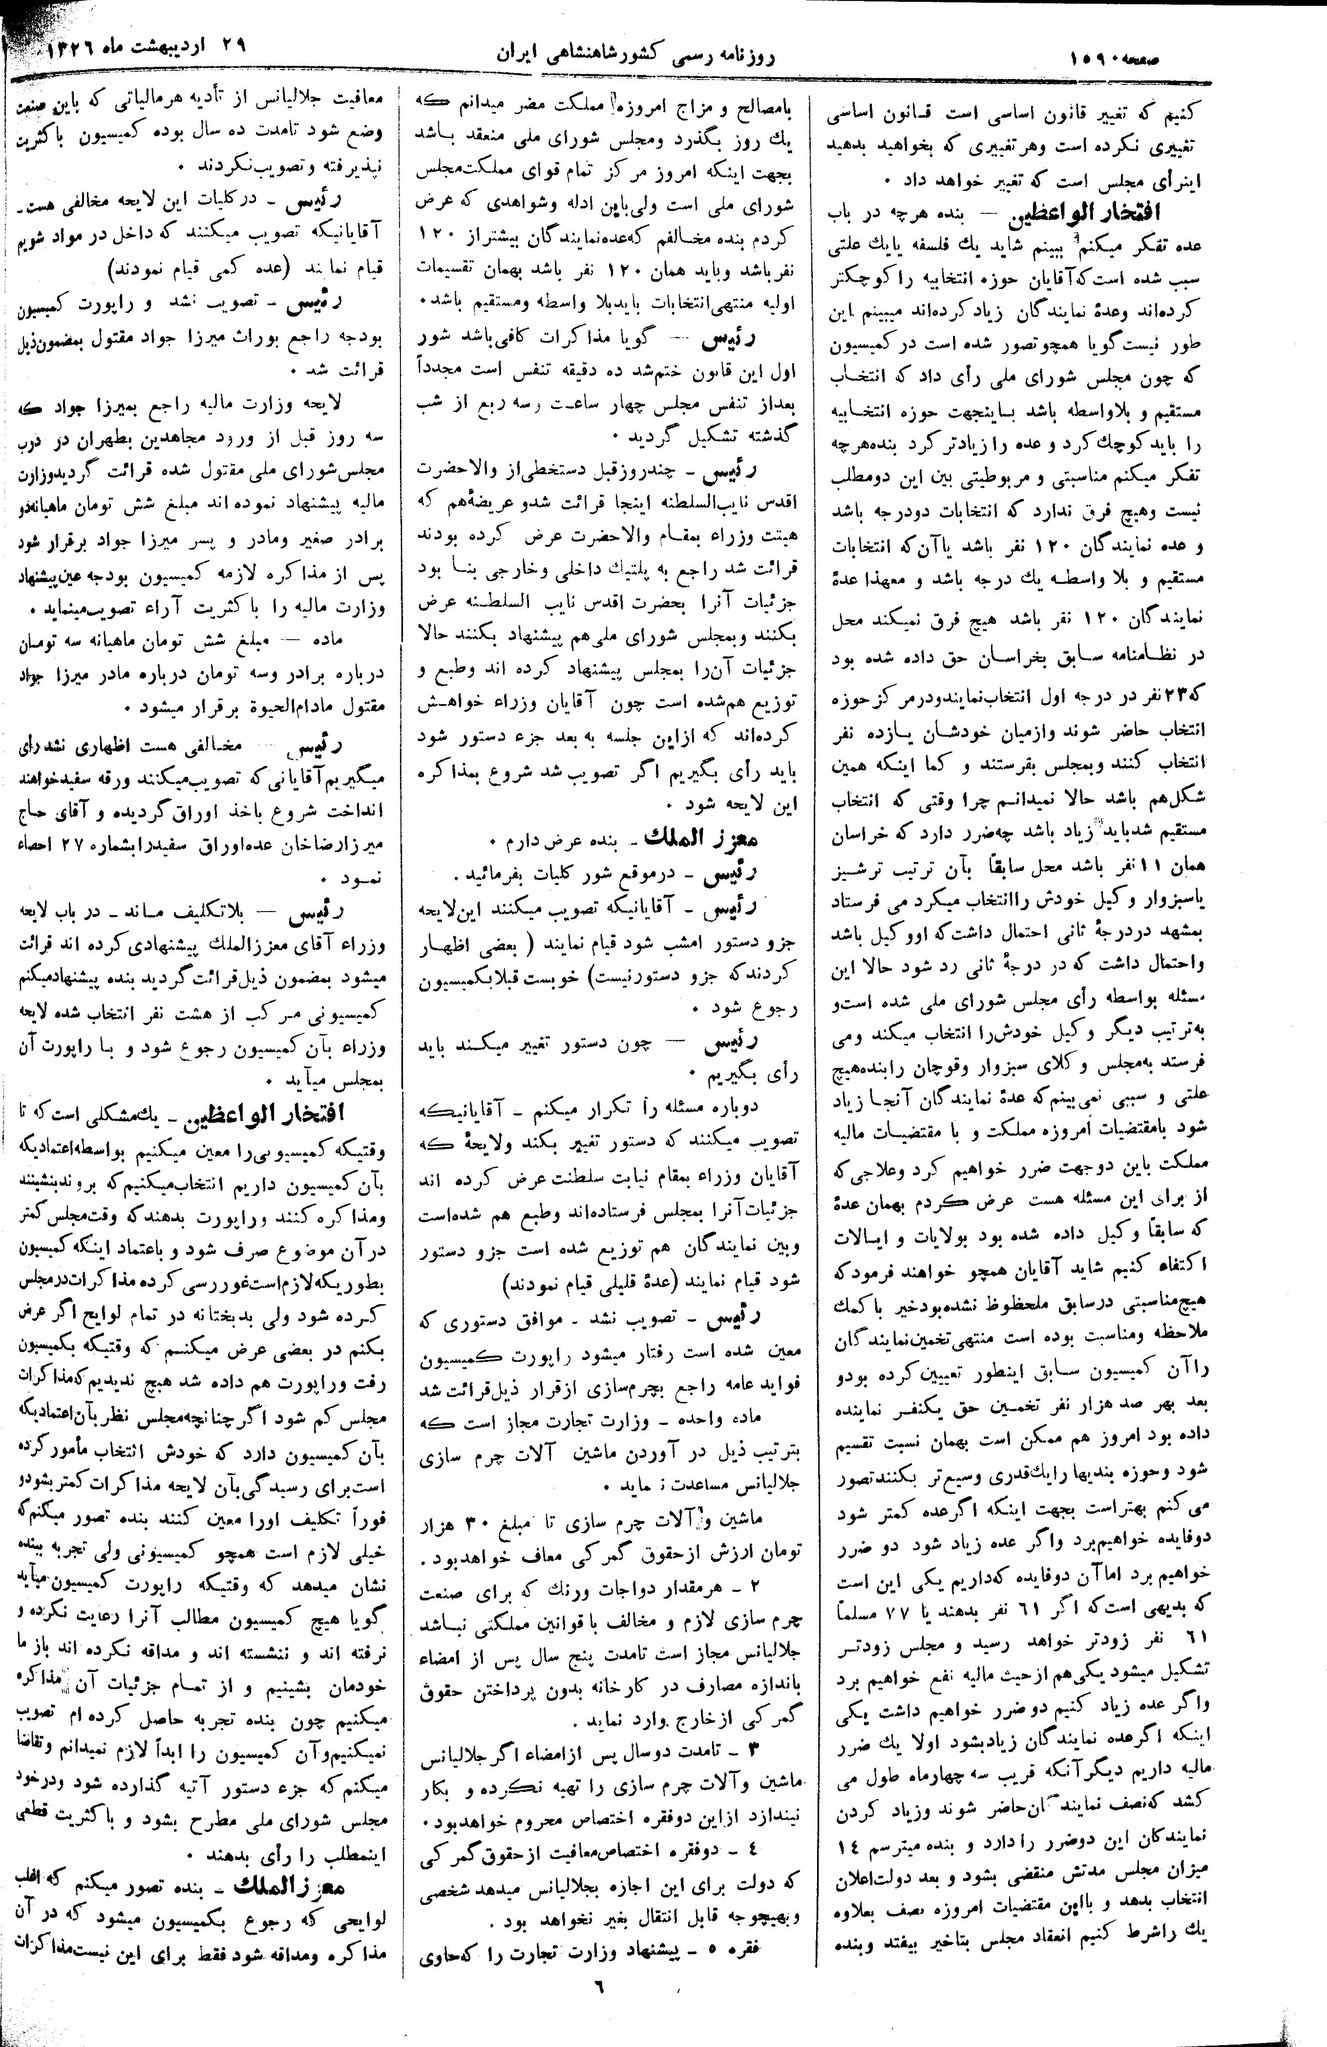 صفحه ۱۵۹۰
روزنامه رسمی کشور شاهنشاهی ایران
۲۹ اردیبهشت ماه ۱۳۲۶
کنیم که تغییر قانون اساسی است قانون اساسی
تغییری نکرده است وهر تغییری که بخواهید بدهید
اینرأی مجلس است که تغییر خواهد داد .
افتخار الواعظین — بنده هرچه در باب
عده تفکر میکنم ببینم شاید یك فلسفه یا یك علتی
سبب شده است که آقایان حوزه انتخابیه را کوچکتر
کرده‌اند وعدهٔ نمایندگان زیاد کرده‌اند میبینم این
طور نیست گویا همچو تصور شده است در کمیسیون
که چون مجلس شورای ملی رأی داد که انتخاب
مستقیم و بلاواسطه باشد باینجهت حوزه انتخابیه
را باید کوچك کرد و عده را زیادتر کرد بنده هرچه
تفکر میکنم مناسبتی و مربوطیتی بین این دومطلب
نیست وهیچ فرق ندارد که انتخابات دودرجه باشد
و عده نمایندگان ۱۲۰ نفر باشد یا آن که انتخابات
مستقیم و بلا واسطه یك درجه باشد و معهذا عدهٔ
نمایندگان ۱۲۰ نفر باشد هیچ فرق نمیکند محل
در نظامنامه سابق بخراسان حق داده شده بود
که ۲۳ نفر در درجه اول انتخاب نمایند ودر مرکز حوزه
انتخاب حاضر شوند وازمیان خودشان یازده نفر
انتخاب کنند وبمجلس بفرستند و کما اینکه همین
شکل هم باشد حالا نمیدانم چرا وقتی که انتخاب
مستقیم شد باید زیاد باشد چه ضرر دارد که خراسان
همان ۱۱ نفر باشد محل سابقاً بآن ترتیب ترشیز
یا سبزوار و کیل خودش را انتخاب میکرد می فرستاد
بمشهد دردرجهٔ ثانی احتمال داشت که او و کیل باشد
واحتمال داشت که در دوجهٔ ثانی رد شود حالا این
مسئله بواسطه رأی مجلس شورای ملی شده است و
به ترتیب دیگر و کیل خودش را انتخاب میکند ومی
فرستد به مجلس و کلای سبزوار وقوچان را بنده هیچ
علتی و سببی نمی بینم که عدهٔ نمایندگان آنجا زیاد
شود با مقتضیات امروزه مملکت و با مقتضیات مالیه
مملکت باین دو جهت ضرر خواهیم کرد وعلاجی که
از برای این مسئله هست عرض کردم بهمان عدهٔ
که سابقاً و کیل داده شده بود بولایات و ایالات
اکتفاء کنیم شاید آقایان همچو خواهند فرمود که
هیچ مناسبتی در سابق ملحظوظ نشده بود خیر با کمك
ملاحظه ومناسبت بوده است منتهی تخمین نمایندگان
را آن کمیسیون سابق اینطور تعیین کرده بود و
بعد بهر صد هزار نفر تخمین حق یکنفر نماینده
داده بود امروز هم ممکن است بهمان نسبت تقسیم
شود وحوزه بندیها را یك قدری وسیع تر بکنند تصور
می کنم بهتر است بجهت اینکه اگر عده کمتر شود
دوفایده خواهیم برد واگر عده زیاد شود دو ضرر
خواهیم برد اما آن دوفایده که داریم یکی این است
که بدیهی است که اگر ۶۱ نفر بدهند یا ۷۷ مسلماً
۶۱ نفر زودتر خواهد رسید و مجلس زودتر
تشکیل میشود یکی هم از حیث مالیه نفع خواهیم برد
واگر عده زیاد کنیم دو ضرر خواهیم داشت یکی
اینکه اگر عده نمایندگان زیاد بشود اولا یك ضرر
مالیه داریم دیگر آنکه قریب سه چهار ماه طول می
کشد که نصف نمایندگان حاضر شوند وزیاد کردن
نمایندگان این دو ضرر را دارد و بنده میترسم ۱۴
میزان مجلس مدتش منقضی بشود و بعد دولت اعلان
انتخاب بدهد و با این مقتضیات امروزه نصف بعلاوه
یك را شرط کنیم انعقاد مجلس بتاخیر بیفتد وبنده
بامصالح و مزاج امروزه مملکت مضر میدانم که
یك روز بگذرد ومجلس شورای ملی منعقد باشد
بجهت اینکه امروز مرکز تمام قوای مملکت مجلس
شورای ملی است ولی باین ادله وشواهدی که عرض
کردم بنده مخالفم که عده نمایندگان بیشتر از ۱۲۰
نفر باشد وباید همان ۱۲۰ نفر باشد بهمان تقسیمات
اولیه منتهی انتخابات باید بلا واسطه ومستقیم باشد.
رئیس — گویا مذاکرات کافی باشد شور
اول این قانون ختم شد ده دقیقه تنفس است مجدداً
بعد از تنفس مجلس چهار ساعت وسه ربع از شب
گذشته تشکیل گردید .
رئیس – چند روز قبل دستخطی از والا حضرت
اقدس نایب السلطنه اینجا قرائت شد و عریضهٔ هم که
هیئت وزراء بمقام والاحضرت عرض کرده بودند
قرائت شد راجع به پلتیك داخلی وخارجی بنا بود
جزئیات آنرا بحضرت اقدس نایب السلطنه عرض
بکنند وبمجلس شورای ملی هم پیشنهاد بکنند حالا
جزئیات آن را بمجلس پیشنهاد کرده اند وطبع و
توزیع هم شده است چون آقایان وزراء خواهش
کرده‌اند که از این جلسه به بعد جزء دستور شود
باید رأی بگیریم اگر تصویب شد شروع بمذاکره
این لایحه شود .
معزز الملك – بنده عرض دارم .
رئیس – در موقع شور کلیات بفرمائید .
رئیس – آقایانیکه تصویب میکنند این لایحه
جزو دستور امشب شود قیام نمایند ( بعضی اظهار
کردند که جزو دستور نیست) خوبست قبلا بکمیسیون
رجوع شود .
رئیس — چون دستور تغییر میکند باید
رأی بگیریم .
دوباره مسئله را تکرار میکنم – آقایانیکه
تصویب میکنند که دستور تغییر بکند ولایحهٔ که
آقایان وزراء بمقام نیابت سلطنت عرض کرده اند
جزئیات آنرا بمجلس فرستاده‌اند وطبع هم شده است
وبین نمایندگان هم توزیع شده است جزو دستور
شود قیام نمایند (عدهٔ قلیلی قیام نمودند)
رئیس – تصویب نشد – موافق دستوری که
معین شده است رفتار میشود راپورت کمیسیون
فواید عامه راجع بچرم سازی از قرار ذیل قرائت شد
ماده واحده – وزارت تجارت مجاز است که
بترتیب ذیل در آوردن ماشین آلات چرم سازی
جلالیانس مساعدت نماید .
ماشین و آلات چرم سازی تا مبلغ ۳۰ هزار
تومان ارزش از حقوق گمرکی معاف خواهد بود .
۲ – هر مقدار دواجات ورنك که برای صنعت
چرم سازی لازم و مخالف با قوانین مملکتی نباشد
جلالیانس مجاز است تا مدت پنج سال پس از امضاء
باندازه مصارف در کارخانه بدون پرداختن حقوق
گمرکی از خارج وارد نماید .
۳ – تا مدت دوسال پس از امضاء اگر جلالیانس
ماشین وآلات چرم سازی را تهیه نکرده و بکار
نیندازد از این دوفقره اختصاص محروم خواهد بود .
۴ – دوفقره اختصاص معافیت از حقوق گمرکی
که دولت برای این اجازه بجلالیانس میدهد شخصی
وبهیچوجه قابل انتقال بغیر نخواهد بود .
فقره ۵ – پیشنهاد وزارت تجارت را که حاوی
معافیت جلالیانس از تأدیه هر مالیاتی که باین صنعت
وضع شود تا مدت ده سال بوده کمیسیون باکثریت
نپذیرفته وتصویب نکردند .
رئیس – در کلیات این لایحه مخالفی هست –
آقایانیکه تصویب میکنند که داخل در مواد شویم
قیام نمایند (عده کمی قیام نمودند)
رئیس – تصویب نشد و راپورت کمیسیون
بودجه راجع بوراث میرزا جواد مقتول بمضمون ذیل
قرائت شد .
لایحه وزارت مالیه راجع بمیرزا جواد که
سه روز قبل از ورود مجاهدین بطهران در درب
مجلس شورای ملی مقتول شده قرائت گردید وزارت
مالیه پیشنهاد نموده اند مبلغ شش تومان ماهیانه دو
برادر صغیر ومادر و پسر میرزا جواد برقرار شود
پس از مذاکره لازمه کمیسیون بودجه عین پیشنهاد
وزارت مالیه را باکثریت آراء تصویب مینماید .
ماده — مبلغ شش تومان ماهیانه سه تومان
درباره برادر وسه تومان درباره مادر میرزا جواد
مقتول مادام الحیوة برقرار میشود .
رئیس — مخالفی هست اظهاری نشد رأی
میگیریم آقایانی که تصویب میکنند ورقه سفید خواهند
انداخت شروع باخذ اوراق گردیده و آقای حاج
میرزا رضاخان عده اوراق سفید را بشماره ۲۷ احصاء
نمود .
رئیس — بلا تکلیف ماند – در باب لایحه
وزراء آقای معزز الملك پیشنهادی کرده اند قرائت
میشود بمضمون ذیل قرائت گردید بنده پیشنهاد میکنم
کمیسیونی مرکب از هشت نفر انتخاب شده لایحه
وزراء بآن کمیسیون رجوع شود و با راپورت آن
بمجلس میآید .
افتخار الواعظین – یك مشکلی است که تا
وقتیکه کمیسیونی را معین میکنیم بواسطه اعتمادیکه
بآن کمیسیون داریم انتخاب میکنیم که بروند بنشینند
ومذاکره کنند وراپورت بدهند که وقت مجلس کمتر
در آن موضوع صرف شود و با عتماد اینکه کمیسیون
بطوریکه لازم است غور رسی کرده مذاکرات در مجلس
کرده شود ولی بدبختانه در تمام لوایح اگر عرض
بکنم در بعضی عرض میکنم که وقتیکه بکمیسیون
رفت وراپورت هم داده شد هیچ ندیدیم که مذاکرات
مجلس کم شود اگر چنانچه مجلس نظر بآن اعتمادیکه
بآن کمیسیون دارد که خودش انتخاب مأمور کرده
است برای رسیدگی بآن لایحه مذاکرات کمتر بشود و
فوراً تکلیف اورا معین کنند بنده تصور میکنم که
خیلی لازم است همچو کمیسیونی ولی تجربه ببنده
نشان میدهد که وقتیکه راپورت کمیسیون میآید
گویا هیچ کمیسیون مطالب آنرا رعایت نکرده و
نرفته اند و ننشسته اند و مداقه نکرده اند باز ما
خودمان بشینیم و از تمام جزئیات آن مذاکره
میکنیم چون بنده تجربه حاصل کرده ام تصویب
نمیکنیم وآن کمیسیون را ابداً لازم نمیدانم وتقاضا
میکنم که جزء دستور آتیه گذارده شود ودر خود
مجلس شورای ملی مطرح بشود و با کثریت قطعی
اینمطلب را رأی بدهند .
معزز الملك – بنده تصور میکنم که اغلب
لوایحی که رجوع بکمیسیون میشود که در آن
مذاکره ومداقه شود فقط برای این نیست مذاکرات
۶